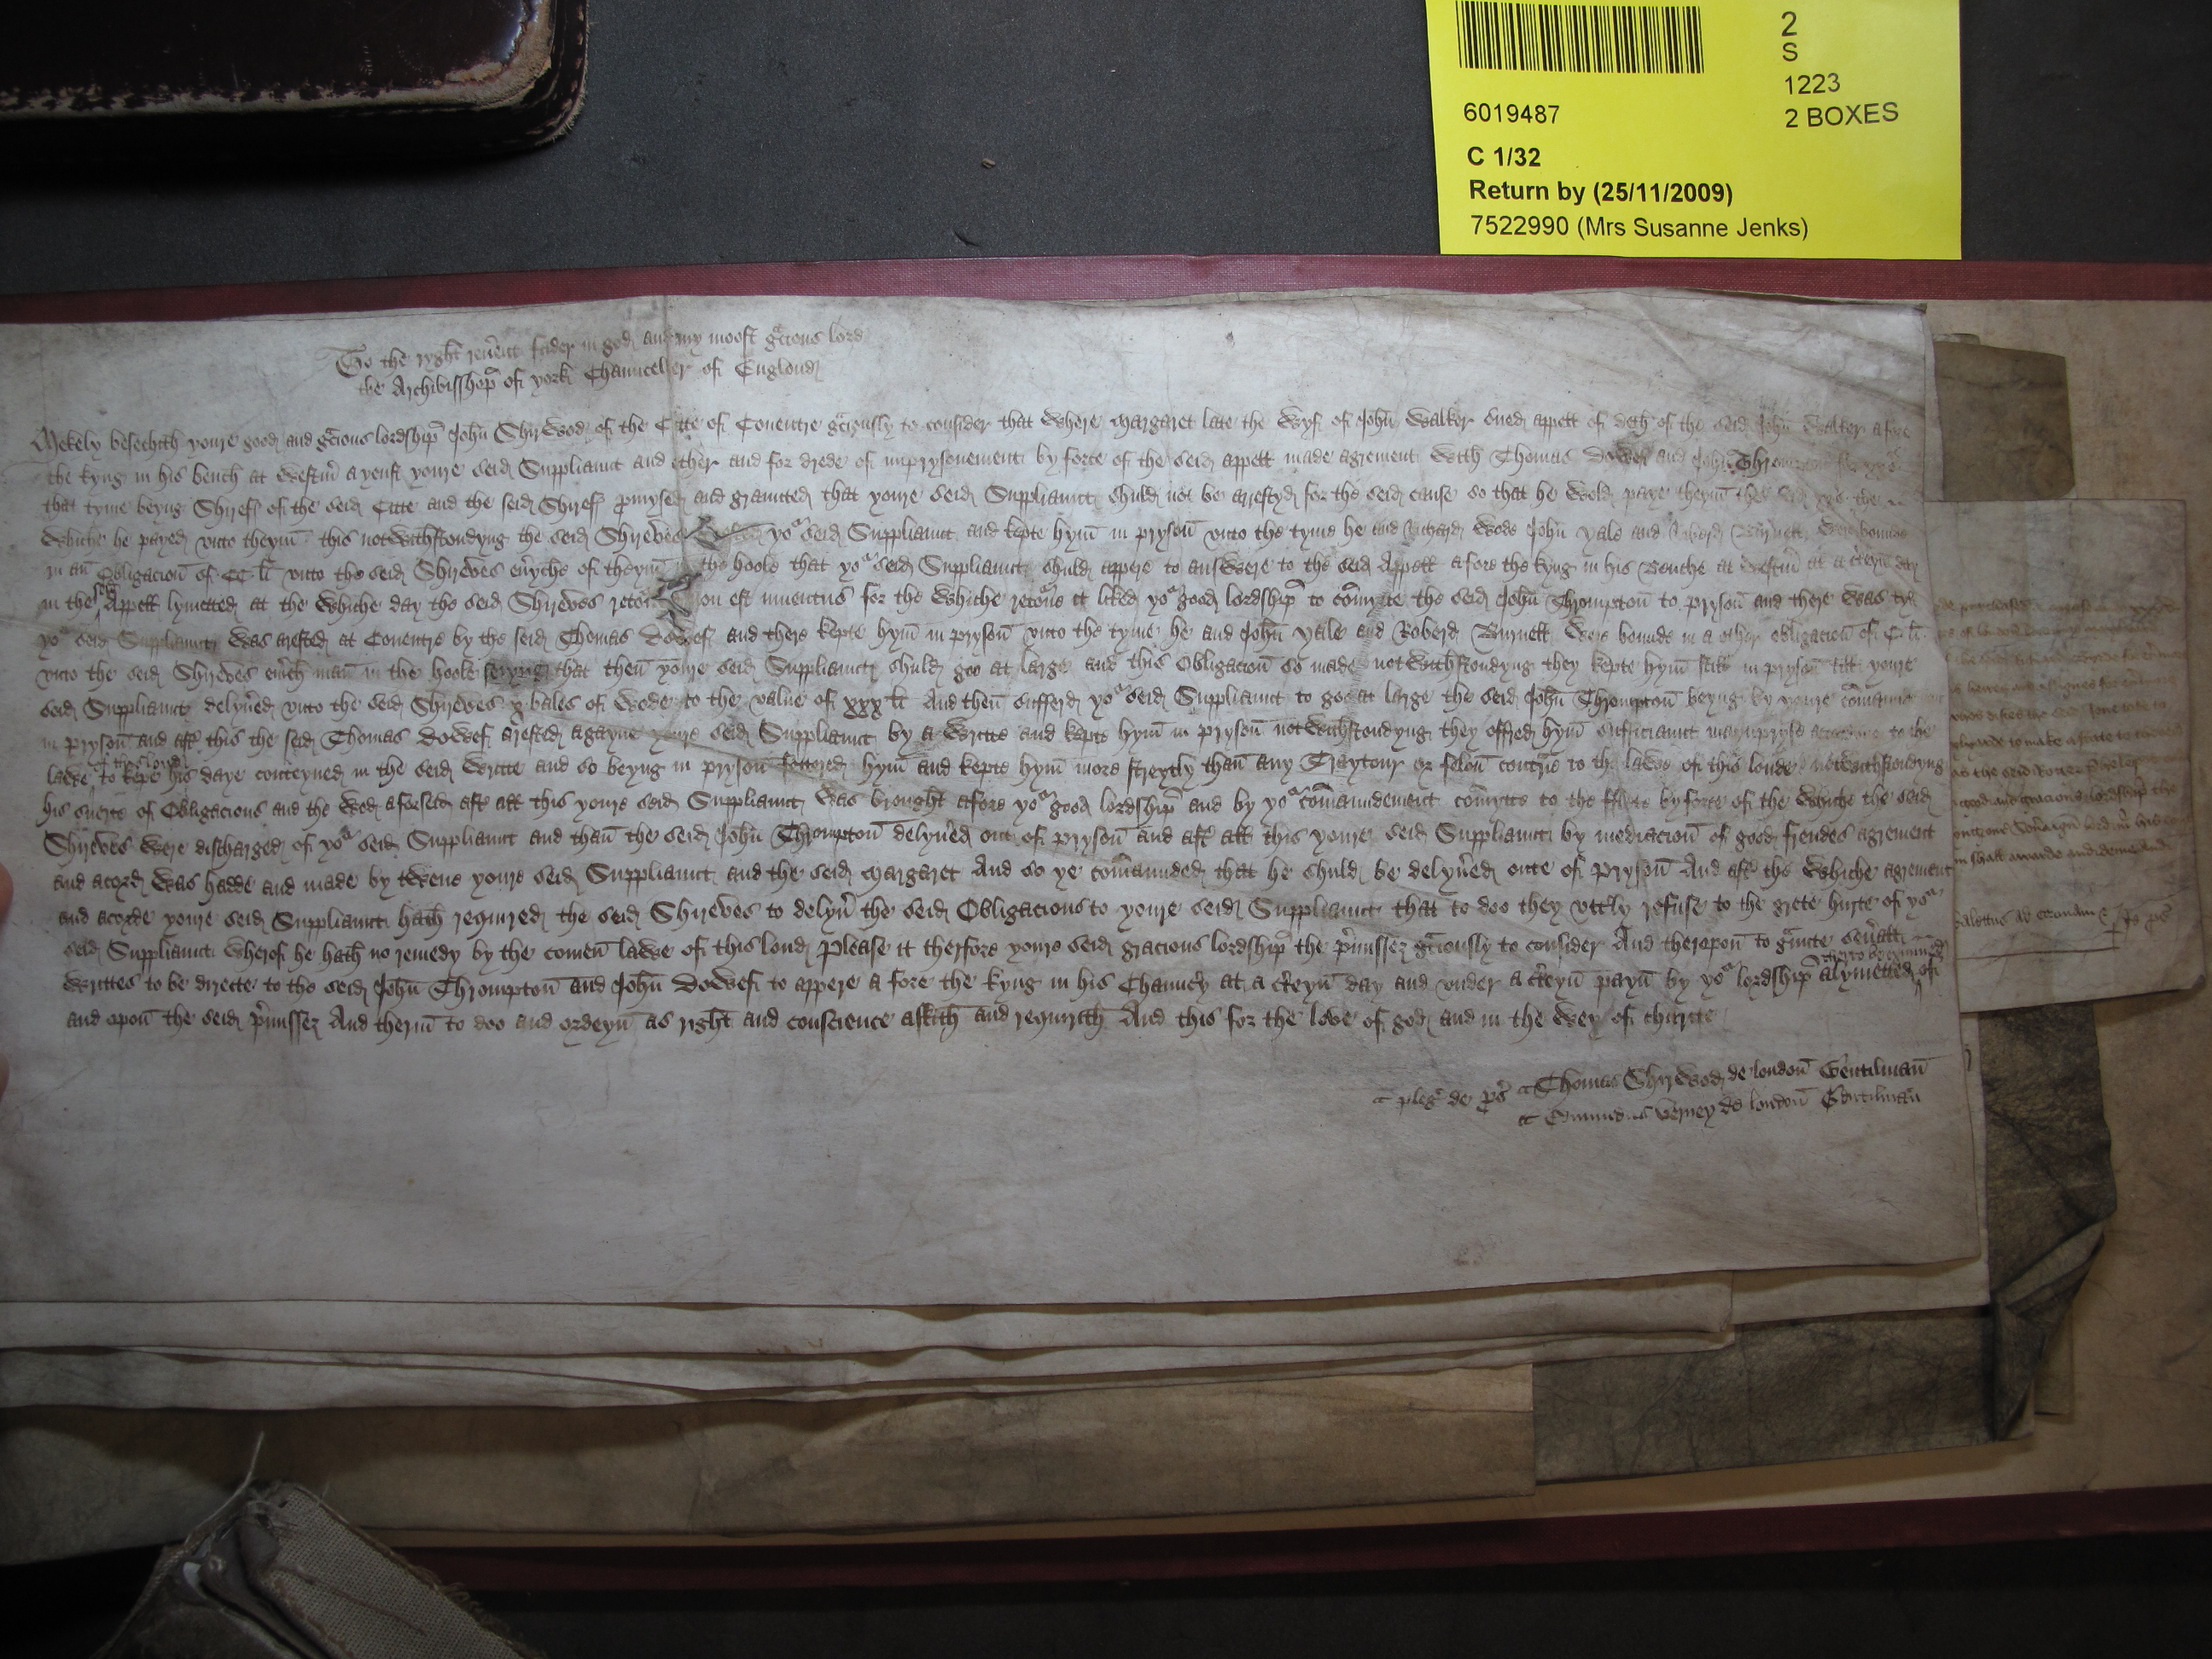 2
S
1223
6019487
2 BOXES
C 1/32
Return by (25/11/2009)
7522990 (Mrs Susanne Jenks)
To the ryght reu'ent fader in god and my moost g'cious lord
the Archibisshop of york Chaunceller of Englond
Mekely besechith youre good and g'cious lordship John Shirwod of the Citte of Couentre g'ciously to consider that where Margaret late the wyf of John Walker sued appell of deth of the seid John Walker afore
the kyng in his bench at Westm' ayenst youre seid Suppliaunt and other and for drede of imprysonement by force of the seid appell made agrement with Thomas Dowes and John Thrompton
that tyme beyng Shirefs of the seid Citte and the seid Shirefs promysed and graunted that youre seid Suppliaunt shuld not be arrestyd for the seid cause so that he wold paye theym the
whiche he payed vnto theym this notwithstondyng the seid Shireves yo' seid Suppliaunt and kepte hym in pryson vnto the tyme he and Richard Wode John Yale and Roberd Burnett were bounde
in an Obligacion of CC li vnto the seid Shireves eu'yche of theym the hoole that yo' seid Suppliaunt shuld appere to answere to the seid Appell afore the kyng in his Benche at Westm' at a c'teyn day
in the seid Appell lymetted at the whiche day the seid Shireves non est inuentus for the whiche retorne it liked yo' good lordship to com'ytte the seid John Thrompton to pryson and there was
yo' seid Suppliaunt was arested at Couentre by the seid Thomas Dowes and there kepte hym in pryson vnto the tyme he and John Yale and Roberd Burnett were bounde in a other obligacion of C li
vnto the seid Shireves eu'ich man in the hoole seyng that then youre seid Suppliaunt shuld goo at large and this Obligacion so made notwithstondyng they kepte hym still in pryson till youre
seid Suppliaunt delyu'ed vnto the seid Shireves x bales of wode to the value of xxx li And then suffred yo' seid Suppliaunt to goo at large the seid John Thrompton beyng by youre
in pryson and aft' this the seid Thomas Dowes arested agayne youre seid Suppliaunt by a writte and kepte hym in pryson notwithstondyng they offred hym sufficiaunt maynpryse to the
lawe of this lond to kepe his daye conteyned in the seid writte and so beyng in pryson fettered hym and kepte hym more streytly than any Traytour or felon contrie to the lawe of this londe notwithstondyng
his suerte of Obligacions and the wod aforseid aft' all this youre seid Suppliaunt was brought afore yo' good lordship and by yo' com'aundement com'ytte to the fflete by force of the whiche the seid
Shireves were discharged of yo' seid Suppliaunt and than the seid John Thrompton delyu'ed out of pryson and aft' all this youre seid Suppliaunt by mediacion of good frendes agrement
and acord was hadde and made by twene youre seid Suppliaunt and the seid Margaret And so ye com'aunded that he shuld be delyu'ed oute of pryson And aft' the whiche agrement
and acorde youre seid Suppliaunt hath required the seid Shireves to delyu' the seid Obligacions to youre seid Suppliaunt that to doo they vttly refuse to the grete hurte of yo'
seid Suppliaunt wherof he hath no remedy by the comen lawe of this lond Please it therfore youre seid gracious lordship the p'misses g'ciously to consider And therapon to g'unte seu'all
writtes to be directe to the seid John Thrompton and John Dowes to appere a fore the kyng in his Chaunc'y at a c'teyn day and vnder a c'teyn payn by yo' lordship alymetted ther to be examyned of
and opon the seid p'misses And therin to doo and ordeyn as right and conscience askith and requirith And this for the love of god and in the wey of charite
pleg' de ps' Thomas Shirwod de london Gentilman
Edmundus Verney de london Gentilman